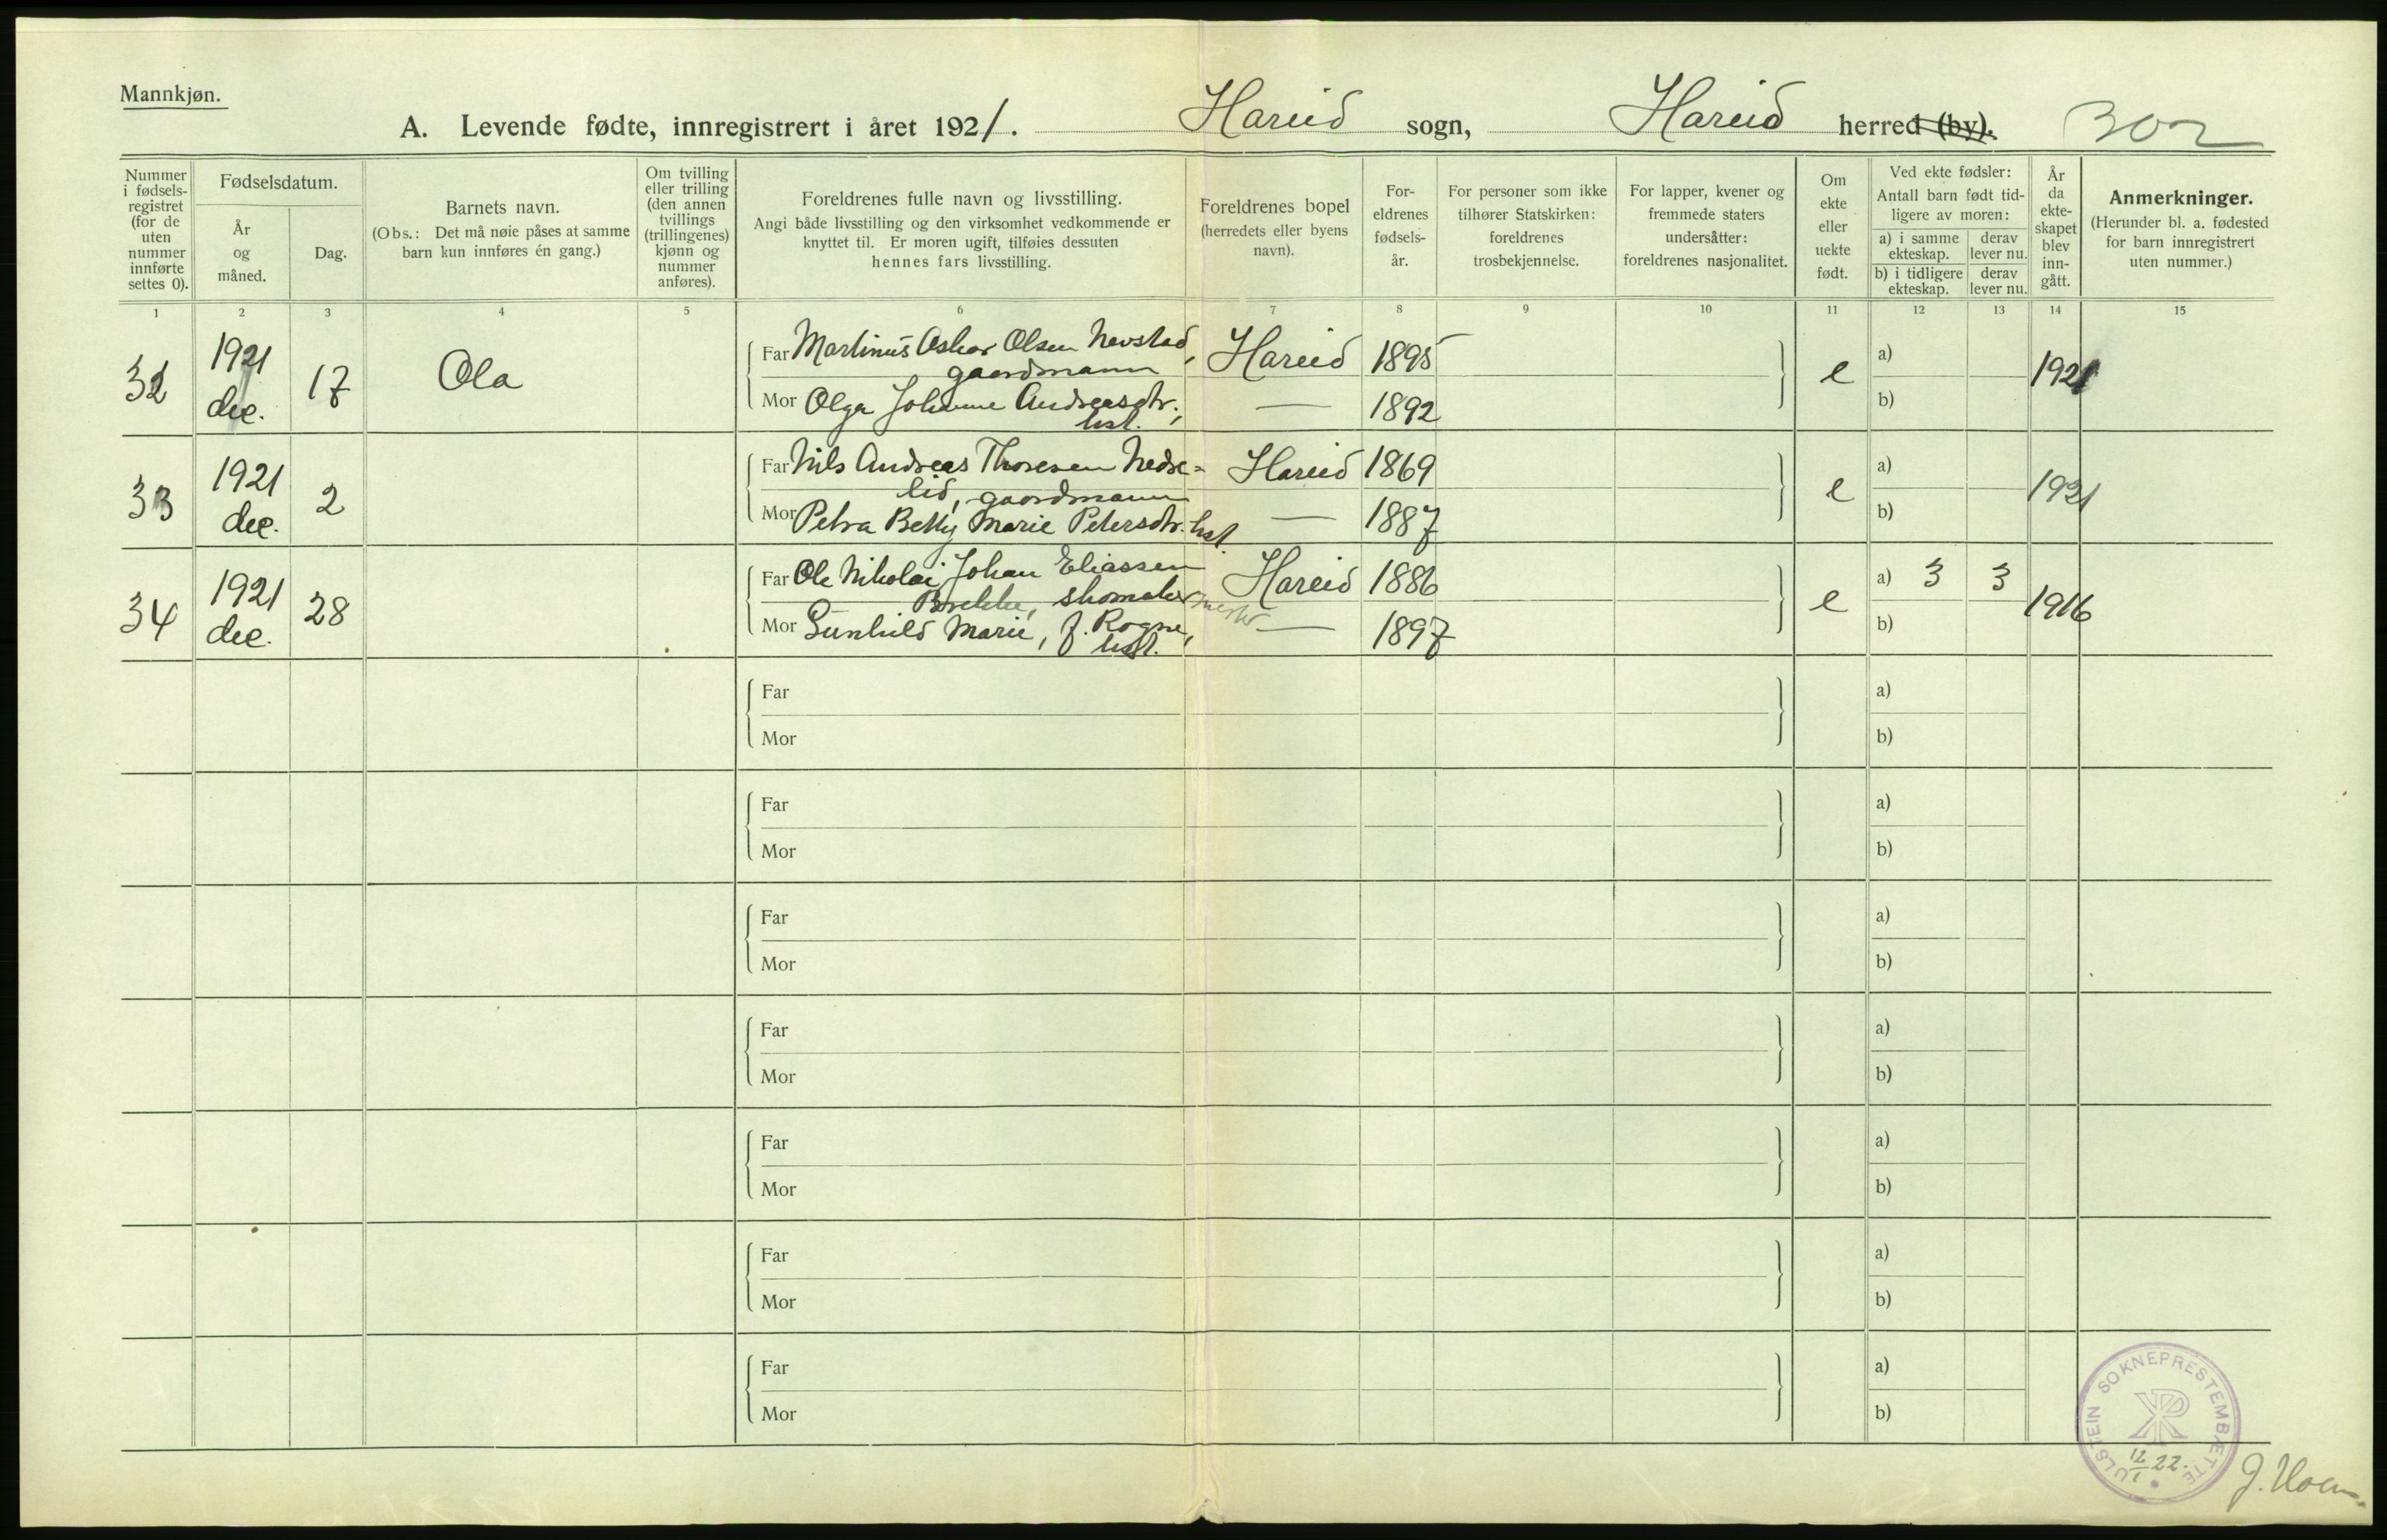 Mannkjøn.
A. Levende fødte, innregistrert i året 1921. Hareid sogn, Hareid herred (by). 302
Nummer i fødsels-registret (for de uten nummer innførte settes 0).
Fødselsdatum.
År og måned.
Dag.
Barnets navn.
(Obs.: Det må nøie påses at samme barn kun innføres én gang.)
Om tvilling eller trilling (den annen tvillings (trillingenes) kjønn og nummer anføres).
Foreldrenes fulle navn og livsstilling.
Angi både livsstilling og den virksomhet vedkommende er knyttet til. Er moren ugift, tilføies dessuten hennes fars livsstilling.
Foreldrenes bopel (herredets eller byens navn).
For-eldrenes fødsels-år.
For personer som ikke tilhører Statskirken: foreldrenes trosbekjennelse.
For lapper, kvener og fremmede staters undersåtter: foreldrenes nasjonalitet.
Om ekte eller uekte født.
Ved ekte fødsler:
Antall barn født tid-ligere av moren:
a) i samme ekteskap. derav lever nu.
b) i tidligere ekteskap. derav lever nu.
År da ekte-skapet blev inn-gått.
Anmerkninger.
(Herunder bl. a. fødested for barn innregistrert uten nummer.)
1 2 3 4 5 6 7 8 9 10 11 12 13 14 15
32 1921 dec. 17 Ola
Far Martinus Oskar Olsen Nevstad, gaardmann Hareid 1895
Mor Olga Johanne Andreasdtr., hst. — 1892
e a) b) 1921
33 1921 dec. 2
Far Nils Andreas Thoresen Nedre-lid, gaardmann Hareid 1869
Mor Petra Betty Marie Petersdtr. hst. — 1887
e a) b) 1921
34 1921 dec. 28
Far Ole Nikolai Johan Eliassen Brekke, skomakermester Hareid 1886
Mor Gunhild Marie, f. Rogne, hst. — 1897
e a) 3 3 b) 1916
Far a)
Mor b)
Far a)
Mor b)
Far a)
Mor b)
Far a)
Mor b)
Far a)
Mor b)
Far a)
Mor b)
Far a)
Mor b)
ULSTEIN SOKNEPRESTEMBÆTTE
12/1 22.